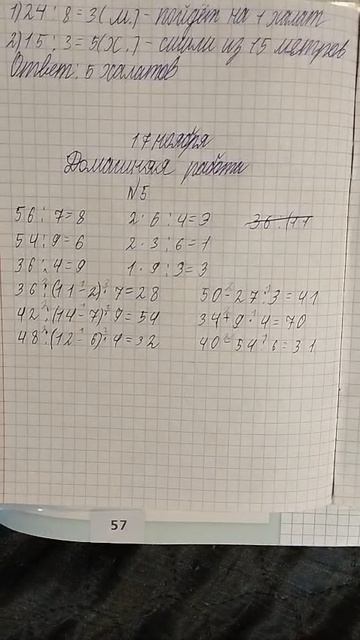 1) 24 : 8 = 3 (м.) - пойдёт на 1 халат
2) 15 : 3 = 5 (х.) - сшили из 15 метров
Ответ: 5 халатов
17 ноября
Домашняя работа
№5
56 : 7 = 8   2 · 6 : 4 = 3   36 : (11
54 : 9 = 6   2 · 3 : 6 = 1
36 : 4 = 9   1 · 9 : 3 = 3
36 : (11 - 2) · 7 = 28   50 - 27 : 3 = 41
42 : (14 - 7) · 9 = 54   34 + 9 · 4 = 70
48 : (12 - 6) · 4 = 32   40 - 54 : 6 = 31
57